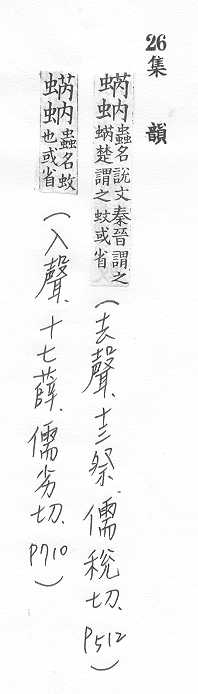 26集　韻
蜹蚋蟲名說文秦晉謂之蜹楚謂之蚊或省(去聲、十三祭、儒稅切、P512)
蜹蚋蟲名蚊也或省(入聲、十七薛、儒劣切、P710)